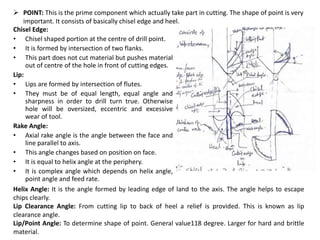 ➢ POINT: This is the prime component which actually take part in cutting. The shape of point is very
important. It consists of basically chisel edge and heel.
Chisel Edge:
• Chisel shaped portion at the centre of drill point.
• It is formed by intersection of two flanks.
• This part does not cut material but pushes material
out of centre of the hole in front of cutting edges.
Lip:
• Lips are formed by intersection of flutes.
• They must be of equal length, equal angle and
sharpness in order to drill turn true. Otherwise
hole will be oversized, eccentric and excessive
wear of tool.
Rake Angle:
• Axial rake angle is the angle between the face and
line parallel to axis.
• This angle changes based on position on face.
• It is equal to helix angle at the periphery.
• It is complex angle which depends on helix angle,
point angle and feed rate.
Helix Angle: It is the angle formed by leading edge of land to the axis. The angle helps to escape
chips clearly.
Lip Clearance Angle: From cutting lip to back of heel a relief is provided. This is known as lip
clearance angle.
Lip/Point Angle: To determine shape of point. General value118 degree. Larger for hard and brittle
material.
Heel